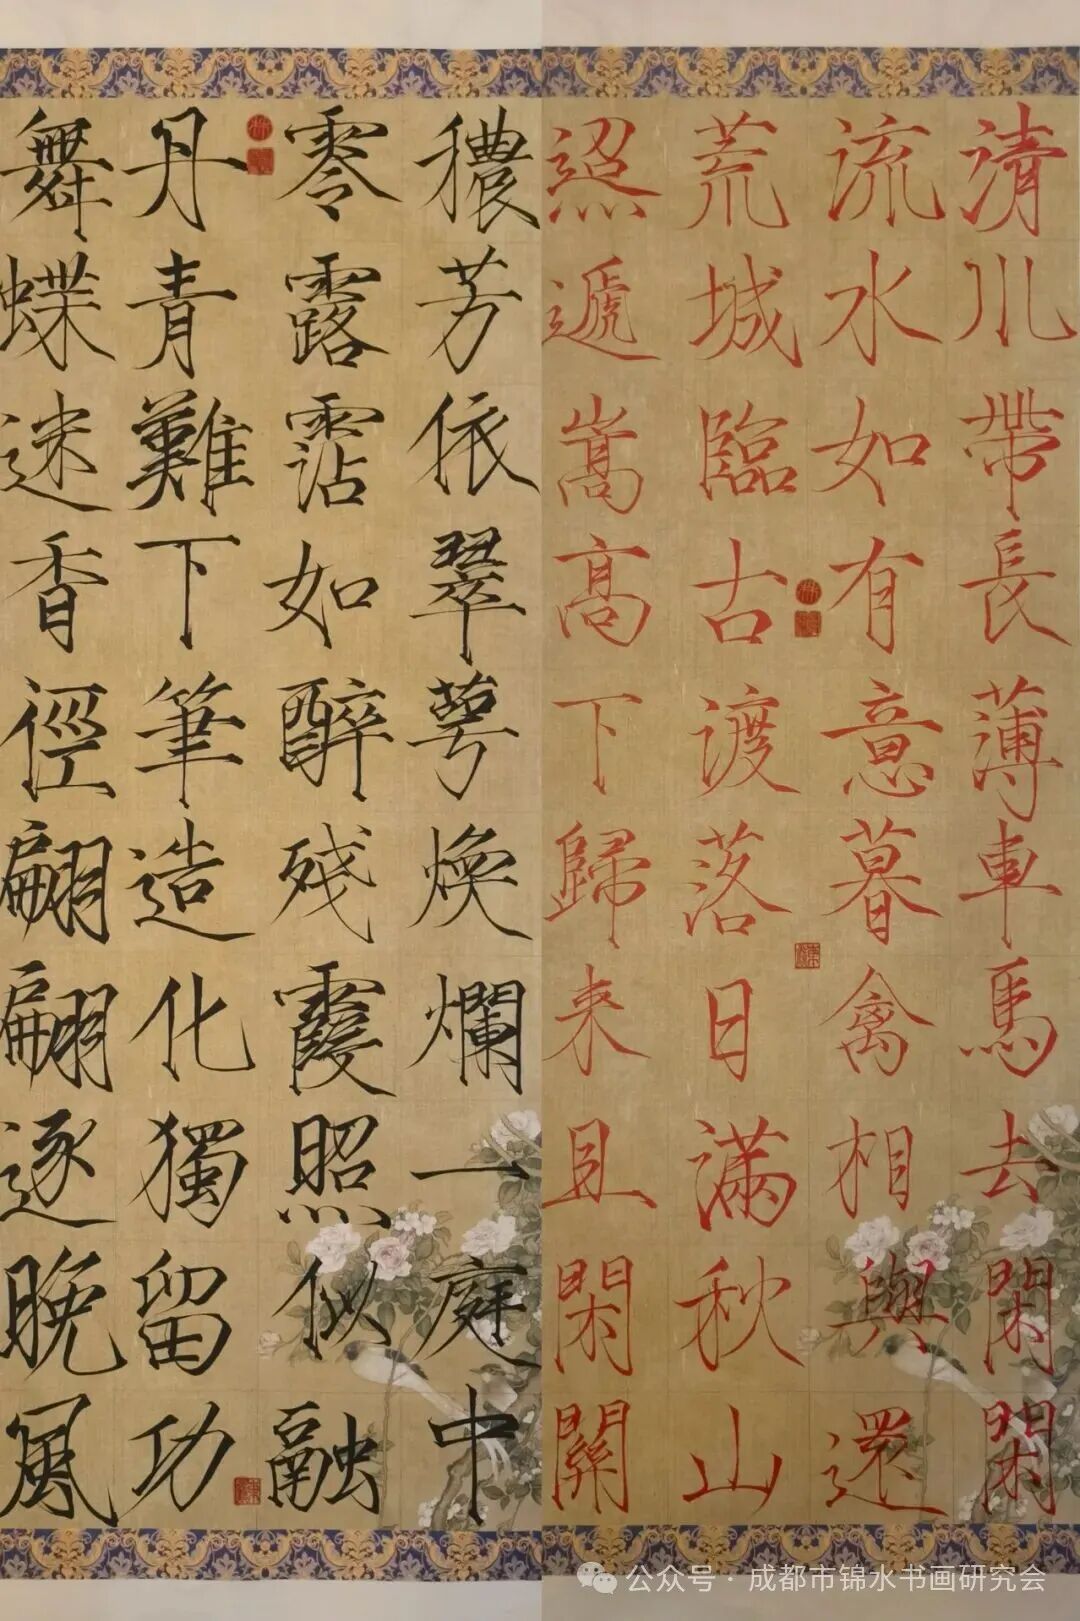 清川帶長薄車馬去閑閑
流水如有意暮禽相與還
荒城臨古渡落日滿秋山
迢遞嵩高下歸来且閑關
穠芳依翠萼煥爛一庭中
零露霑如醉残霞照似融
丹青難下筆造化獨留功
舞蝶迷香徑翩翩逐晚風
公众号 · 成都市锦水书画研究会